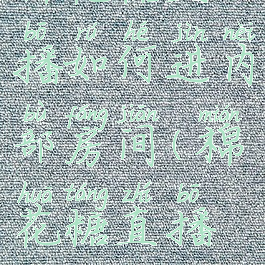 bō rú hé jìn nèi
播如何进内
bù fáng jiān mián
部房间(棉
huā táng zhí bō
花糖直播